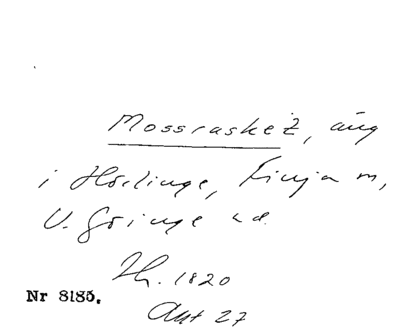 Mossrasket, äng
i Hörlinge, Finja m,
V. Göinge hd.
Lh. 1820
Nr 8185.
Akt 27